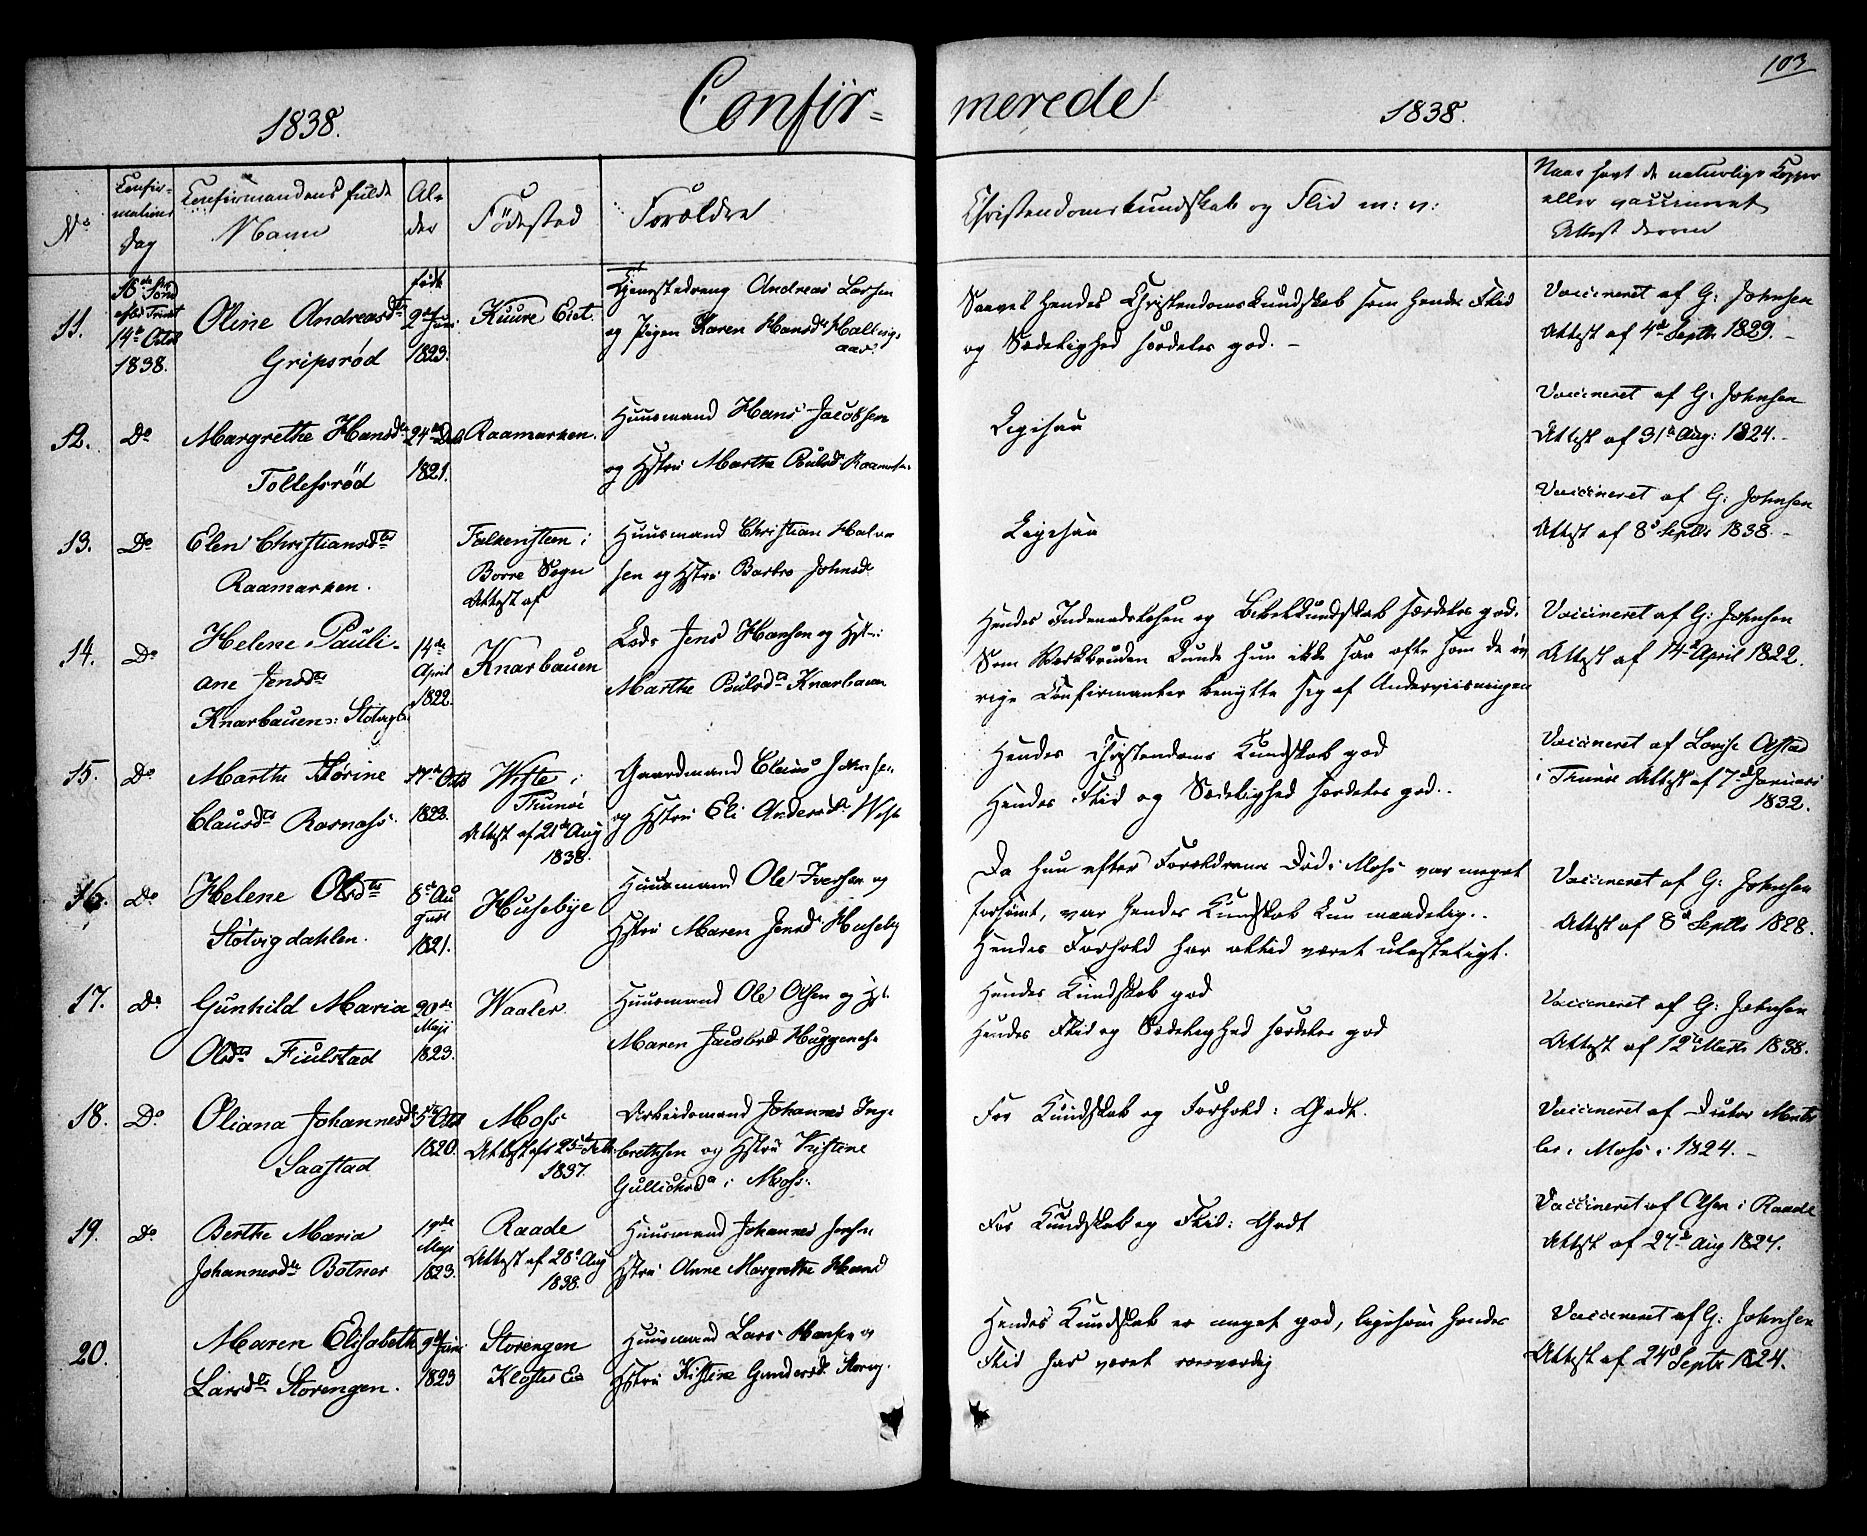 103
1838.
Confir=
merede
1838.
No
Confir-
mations
Dag
Confirmandens fulde
Navn
Al-
der
Födested
Forældre
Christendomskundskab og Flid m: v:
Naar havt de naturlige Kopper
eller vaccineret
Attest derom
11.
18de Sønd
efter Trinit
14de Octbr
1838.
Oline Andreasdtr
Gripsrød
født
2de Juni
1823.
Kuure Eiet.
Andreas Larsen
og Pigen Karen Hansdr Halvigs
Saavel Hendes Christendomskundskab som Hendes Flid
og Sædelighed særdeles god. -
Vaccineret af G: Johnsen
Attest af 4de Septbr 1829. -
12.
Do
Margrethe Hansdtr
Tollefsröd
24de Decb
1821.
Raamarken.
Huusmand Hans Jacobsen
og Hstru Marthe Poulsdr
Ligesaa
Vaccineret af G: Johnsen
Attest af 31te Aug: 1824.
13.
Do
Elen Christiansdtr
Raamarken.
Falkensteen i
Borre Sogn
Attest af
Huusmand Christian Halvor
sen og Hstru Barbro Johnsdr
Ligesaa
Vaccineret af G: Johnsen
Attest af 8de Septbr 1838. -
14.
Do
Helene Pauli-
ane Jensdtr
Knarbauen: Støtvigs
14de
April
1822.
Knarbauen
Lods Jens Hansen og Hst:
Marthe Poulsdr Knarbauen
Hendes Indenadslæsen og Bibelkundskab særdeles god.
Som kunde hun ikke saa ofte som de öv
rige Confirmanter benytte sig af Underviisningen
Vaccineret af G: Johnsen
Attest af 14de April 1822.
15.
Do
Marthe Størine
Clausdtr Rørnæss.
17de Octb
1822.
i
Thunöe
Attest af 21de Aug
1838.
Gaardmand Claus Johnsen
og Hstru Eli Andersdr
Hendes Christendoms Kundskab god
Hendes Flid og Sædelighed særdeles god.
Vaccineret af
i Thunöe Attest af 7de Januar
1832.
16.
Do
Helene Olsdtr
Støtvigdahlen.
8de Au
gust
1821.
Husebye
Huusmand Ole Iversen og
Hstru Maren Jensdr Huseby
Da hun efter Forældrene Död i Moss var meget
forsömt, var hendes Kundskab kun maadelig.
Hendes Forhold har altid været ulasteligt.
Vaccineret af G: Johnsen
Attest af 8de Septbr 1828.
17.
Do
Gunhild Maria
Olsdtr Fiulstad
20de
Maji
1823.
Waaler
Huusmand Ole Olsen og Hst.
Maren Jacobsd Huggenæs
Hendes Kundskab god
Hendes Flid og Sædelighed særdeles god
Vaccineret af G: Johnsen
Attest af 12te Marts 1838.
18.
Do
Oliana Johannesdtr
Saastad
5te Octb
1820.
Moss
Attest af 25de Feb:
1837.
Arbeidsmand Johannes Inge
brethsen og Hstru Kristine
Gulliksda i Moss.
For Kundskab og Forhold: Godt.
Vaccineret af
i Moss i 1824. -
19.
Do
Berthe Maria
Johannesdtr Botner
19de
Maji
1823.
Raade
Attest af 28de Aug
1838.
Huusmand Johannes Jensen
Hstru Anne Margrethe Hansd
For Kundskab og Flid: Godt
Vaccineret af Olsen i Raade
Attest af 27de Aug 1827.
20.
Maren Elisabeth
Larsdtr Storengen.
9de Juni
1823
Storengen
Kloster Ei
Huusmand Lars Hansen og
Hstru Kistine Gundersdr
Hendes Kundskab er meget god, ligesom hendes
Flid har været roesværdig
Vaccineret af G: Johnsen
Attest af 24de Septbr 1824.